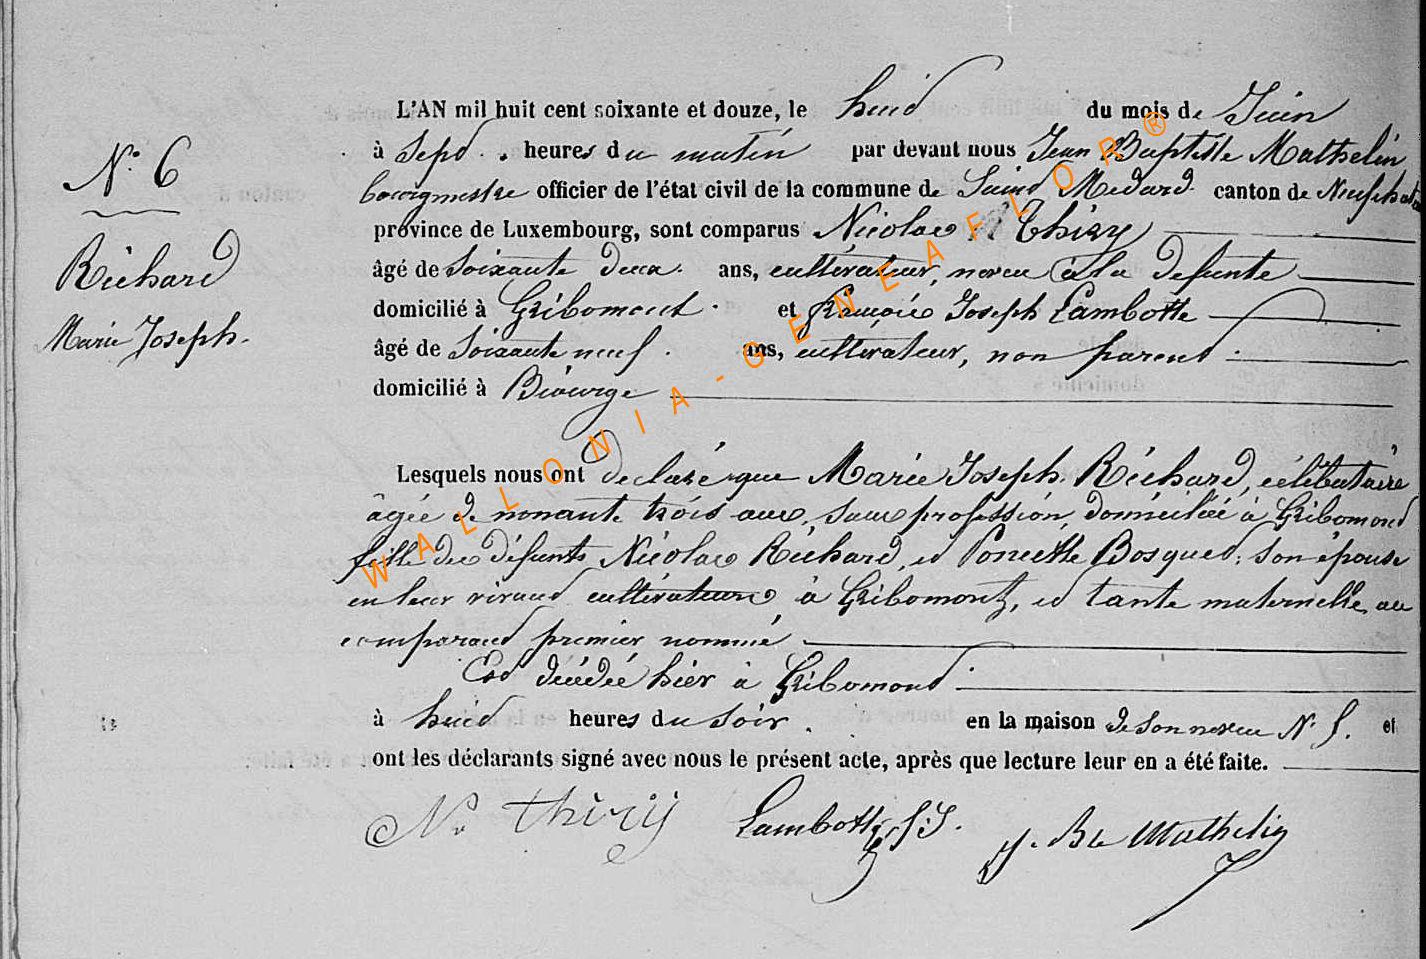 N° 6
Richard
Marie Joseph.
L'AN mil huit cent soixante et douze, le huit du mois de Juin
à sept heures du matin par devant nous Jean Baptiste Mathelin
bourgmestre officier de l'état civil de la commune de Saint Médard canton de Neufchateau
province de Luxembourg, sont comparus Nicolas Thiry
âgé de soixante deux ans, cultivateur, neveu à la défunte
domicilié à Gribomont et François Joseph Lambotte
âgé de soixante neuf ans, cultivateur, non parent
domicilié à Biourge
Lesquels nous ont déclaré que Marie Joseph Richard, célibataire
âgée de nonante trois ans, sans profession, domiciliée à Gribomont
fille des défunts Nicolas Richard, et Poncette Bosquet, son épouse
en leur vivant cultivateurs, à Gribomont, et tante maternelle au
comparant premier nommé
Est décédée hier à Gribomont
à huit heures du soir en la maison de son neveu N. et
ont les déclarants signé avec nous le présent acte, après que lecture leur en a été faite.
N. Thiry Lambotte f.J. J. Bte Mathelin
WALLONIA-GENEAFLOR®